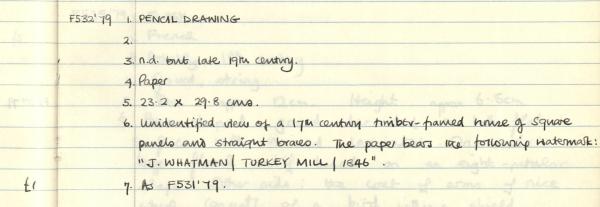 F532'79 1. PENCIL DRAWING
2.
3. n.d. but late 19th century.
4. Paper
5. 23.2 x 29.8 cms.
6. Unidentified view of a 17th century timber-framed house of square
panels and straight braces. The paper bears the following watermark:
"J. WHATMAN / TURKEY MILL / 1846".
£1 7. As F531'79.